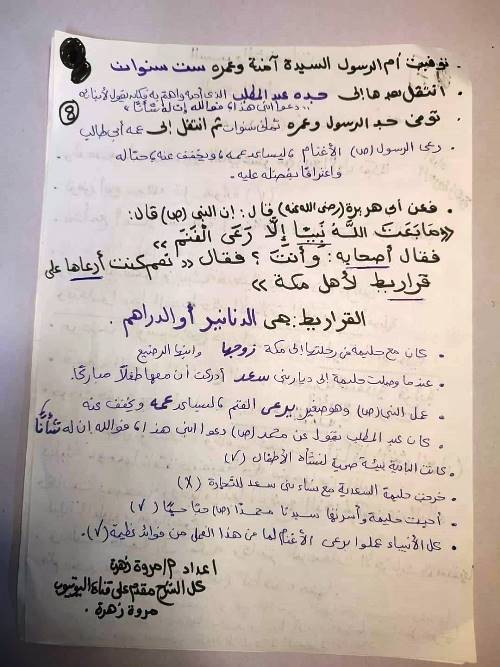 8
. توفيت أم الرسول السيدة آمنة وعمره ست سنوات
. انتقل بعدها إلى جده عبد المطلب الذي أحبه واهتم به فكان يقول لأبنائه
" دعوا ابني هذا، فوالله إن له شأنًا "
8
. توفى جد الرسول وعمره ثماني سنوات ثم انتقل إلى عمه أبي طالب
. رعى الرسول (ص) الأغنام، ليساعد عمه، ويخفف عنه، حبًّا له
واعترافًا بفضله عليه.
. فعن أبي هريرة (رضي الله عنه) قال: إن النبي (ص) قال:
«مَا بَعَثَ اللَّهُ نَبِيًّا إِلَّا رَعَى الْغَنَمَ»
فقال أصحابه: وأنتَ؟ فقال «نعم كنت أرعاها على
قراريط لأهل مكة»
القراريط: هي الدنانير أو الدراهم.
. كان مع حليمة من رحلتها إلى مكة زوجها وابنها الرضيع
. عندما وصلت حليمة إلى ديار بني سعد أدركت أن معها طفلًا مباركًا.
. عمل النبي (ص) وهو صغير برعي الغنم، ليساعد عمه ويخفف عنه
. كان عبد المطلب يقول عن محمد (ص) دعوا ابني هذا، فوالله إن له شأنًا
. كانت البادية بيئة صحية لنشأة الأطفال (√)
. خرجت حليمة السعدية مع نساء بني سعد للتجارة (X)
. أحبت حليمة وأسرتها سيدنا محمدًا (ص) حبًّا جمًّا (√)
. كل الأنبياء عملوا برعي الأغنام لما من هذا العمل من فوائد عظيمة (√).
اعداد م/ مروة زهرة
كل الشرح مقدم على قناة اليوتيوب
مروة زهرة.